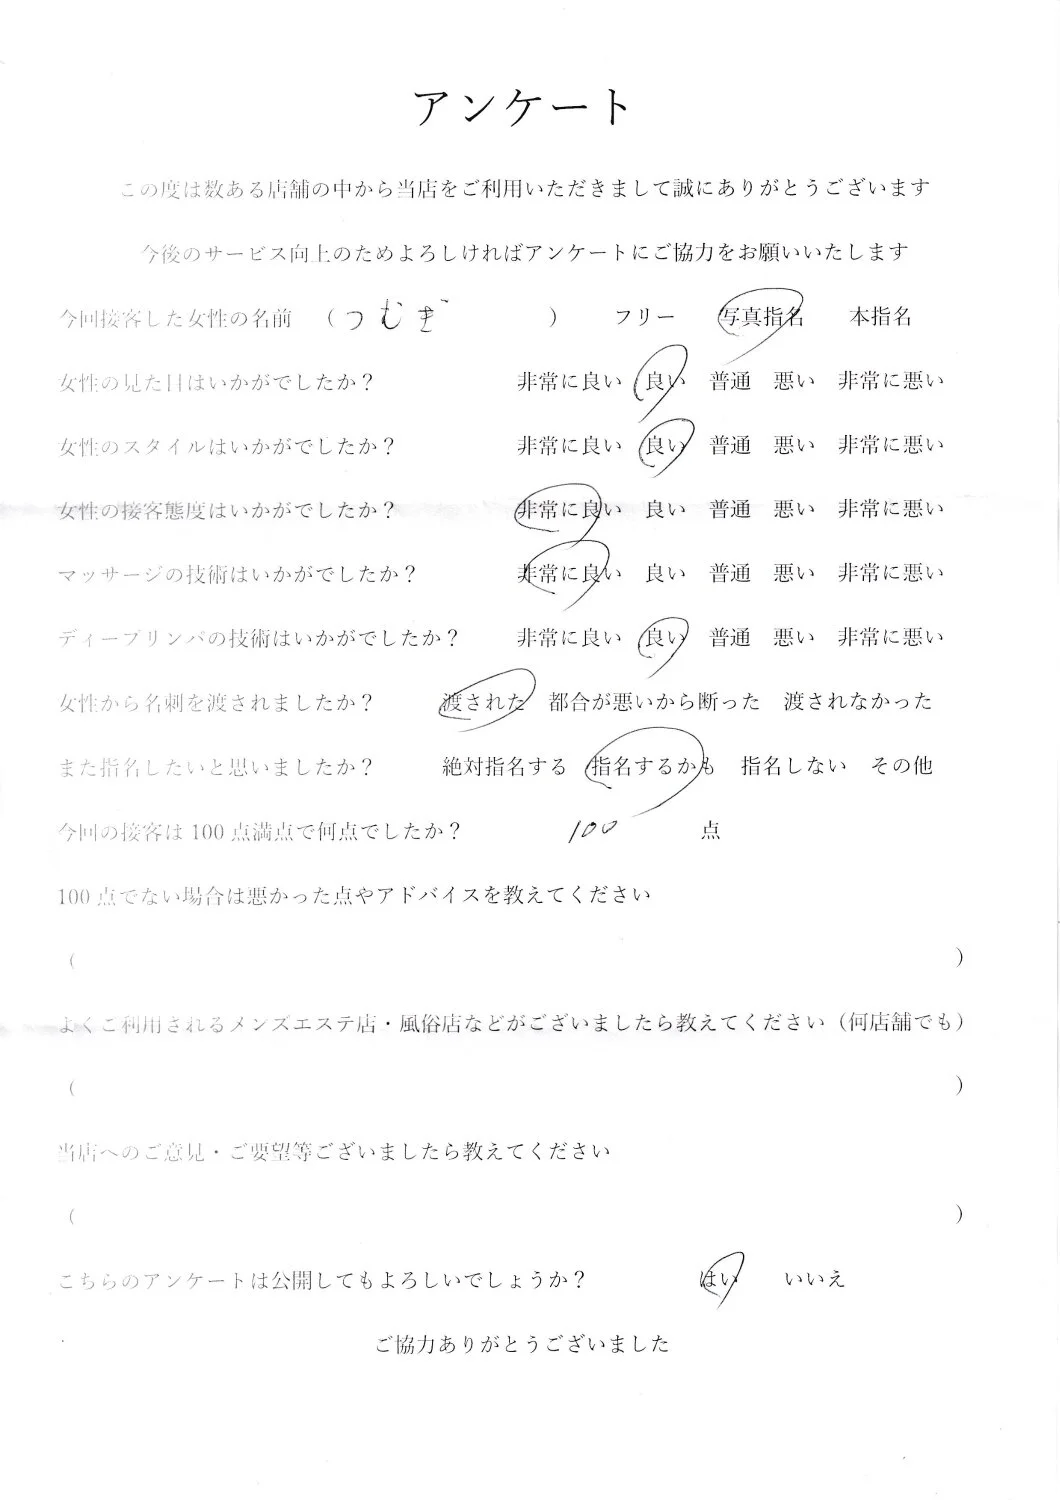 アンケート
この度は数ある店舗の中から当店をご利用いただきまして誠にありがとうございます
今後のサービス向上のためよろしければアンケートにご協力をお願いいたします
今回接客した女性の名前 （つむぎ） フリー 写真指名 本指名
女性の見た目はいかがでしたか？ 非常に良い 良い 普通 悪い 非常に悪い
女性のスタイルはいかがでしたか？ 非常に良い 良い 普通 悪い 非常に悪い
女性の接客態度はいかがでしたか？ 非常に良い 良い 普通 悪い 非常に悪い
マッサージの技術はいかがでしたか？ 非常に良い 良い 普通 悪い 非常に悪い
ディープリンパの技術はいかがでしたか？ 非常に良い 良い 普通 悪い 非常に悪い
女性から名刺を渡されましたか？ 渡された 都合が悪いから断った 渡されなかった
また指名したいと思いましたか？ 絶対指名する 指名するかも 指名しない その他
今回の接客は100点満点で何点でしたか？ 100 点
100点でない場合は悪かった点やアドバイスを教えてください
（ ）
よくご利用されるメンズエステ店・風俗店などがございましたら教えてください（何店舗でも）
（ ）
当店へのご意見・ご要望等ございましたら教えてください
（ ）
こちらのアンケートは公開してもよろしいでしょうか？ はい いいえ
ご協力ありがとうございました